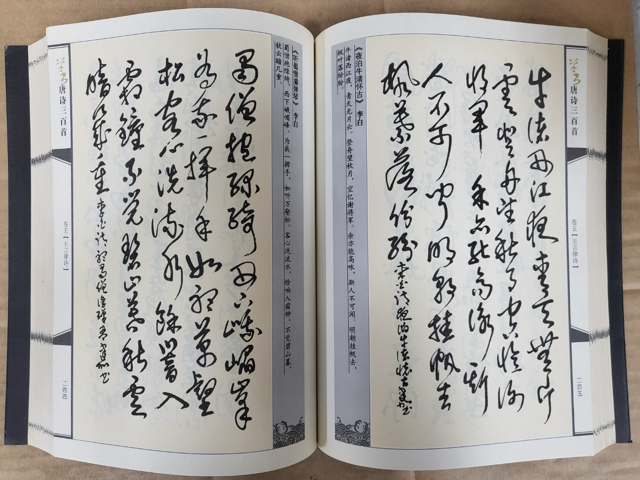 《听蜀僧濬弹琴》 李白
蜀僧抱绿绮，西下峨嵋峰。为我一挥手，如听万壑松。客心洗流水，馀响入霜钟。不觉碧山暮，
秋云暗几重。
蜀僧抱绿绮西下峨嵋峰
为我一挥手如听万壑
松客心洗流水馀响入
霜钟不觉碧山暮秋云
暗几重
李白诗听蜀僧濬弹琴
唐诗三百首
卷五【五言律诗】
二四四
唐诗三百首
卷五【五言律诗】
二四五
牛渚西江夜青天无片
云登舟望秋月空忆谢
将军余亦能高咏斯
人不可闻明朝挂帆去
枫叶落纷纷
李白诗夜泊牛渚怀古
《夜泊牛渚怀古》 李白
牛渚西江夜，青天无片云。登舟望秋月，空忆谢将军。余亦能高咏，斯人不可闻。明朝挂帆去，
枫叶落纷纷。